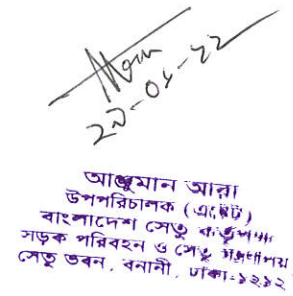 ২০-০৪-২২
আঞ্জুমান আরা
উপপরিচালক (এস্টেট)
বাংলাদেশ সেতু কর্তৃপক্ষ
সড়ক পরিবহন ও সেতু মন্ত্রণালয়
সেতু ভবন, বনানী, ঢাকা-১২১২